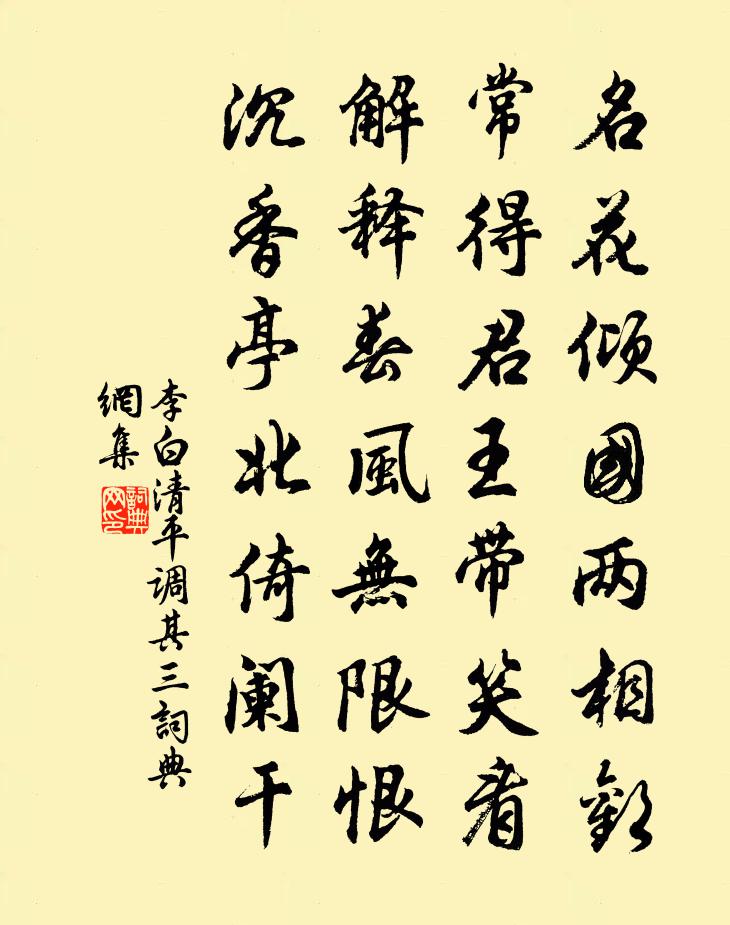 名花倾國两相歡
常得君王带笑看
解释春風無限恨
沉香亭北倚阑干
李白清平调其三詞典
網集
詞典
网印